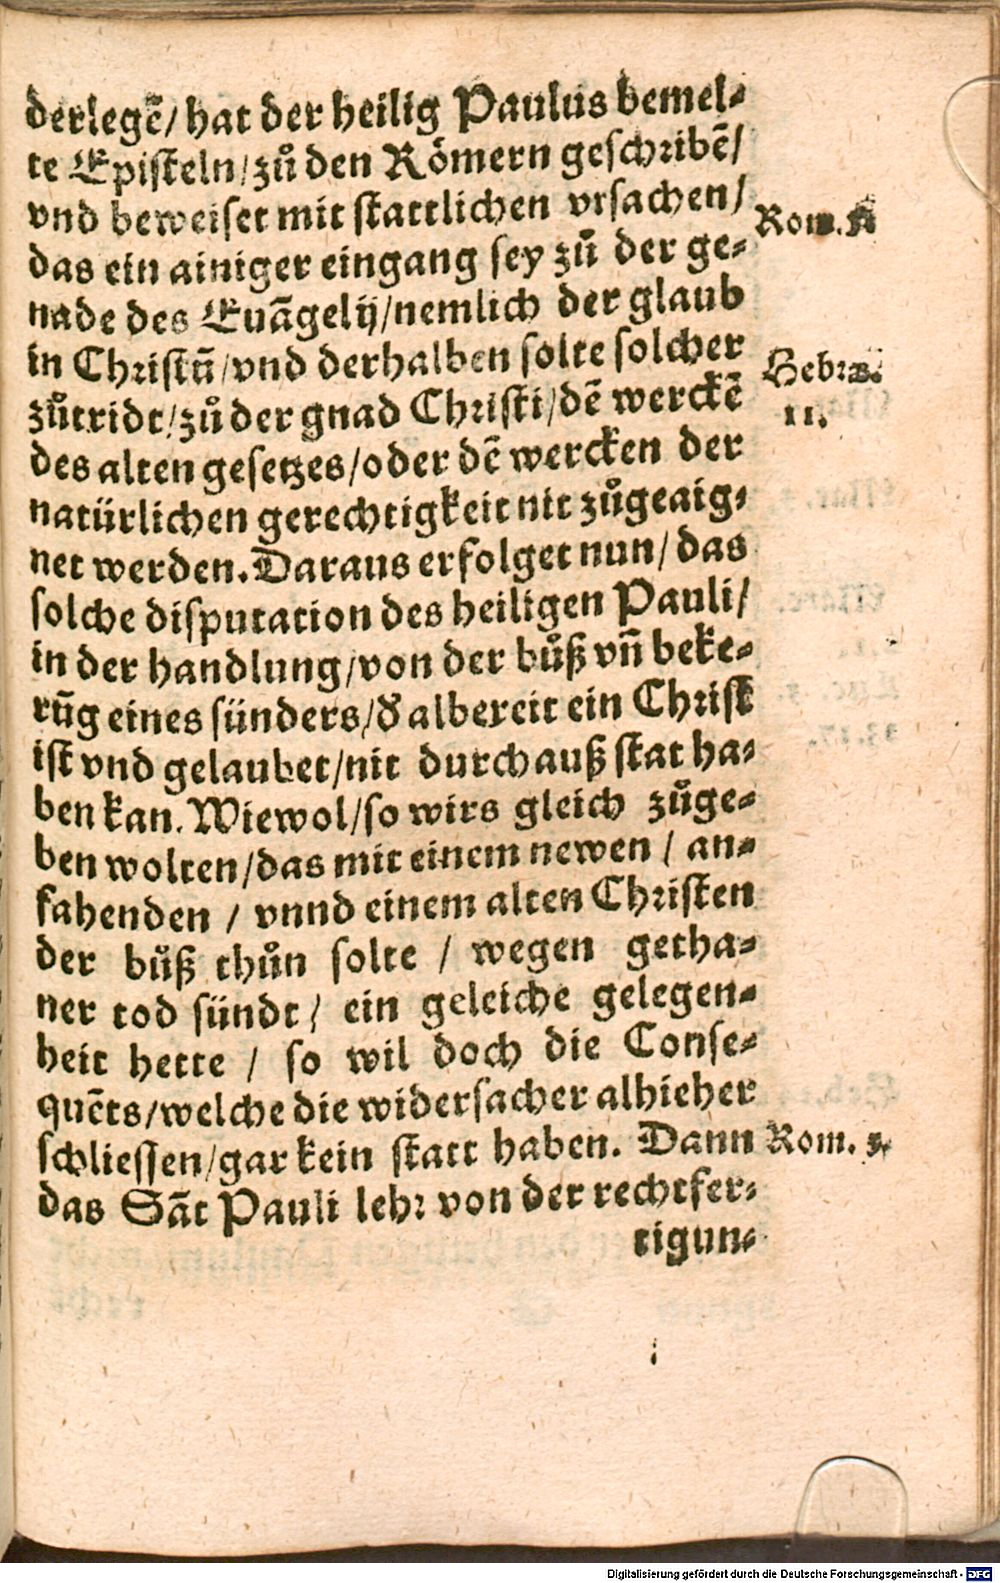 derlegẽ/ hat der heilig Paulus bemel⸗
te Episteln/ zů den Römern geschribẽ/
vnd beweiset mit stattlichen vrsachen/
Rom.
das ein ainiger eingang sey zů der ge⸗
nade des Euãgelij/ nemlich der glaub
in Christũ/ vnd derhalben solte solcher
Hebræ.
zůtridt/ zů der gnad Christi/ dẽ werckẽ
11.
des alten gesetzes/ oder dẽ wercken der
natürlichen gerechtigkeit nit zůgeaig⸗
net werden. Daraus erfolget nun/ das
solche disputation des heiligen Pauli/
in der handlung/ von der bůß vñ beke⸗
rũg eines sünders/ d̕ albereit ein Christ
ist vnd gelaubet/ nit durchauß stat ha⸗
ben kan. Wiewol/ so wirs gleich zůge⸗
ben wolten/ das mit einem newen / an⸗
fahenden / vnnd einem alten Christen
der bůß thůn solte / wegen getha⸗
ner tod sündt/ ein geleiche gelegen⸗
heit hette / so wil doch die Conse⸗
quẽts/ welche die widersacher alhieher
schliessen/ gar kein statt haben. Dann
Rom.
das Sãt Pauli lehr von der rechtfer⸗
tigun⸗
Digitalisierung gefördert durch die Deutsche Forschungsgemeinschaft - DFG